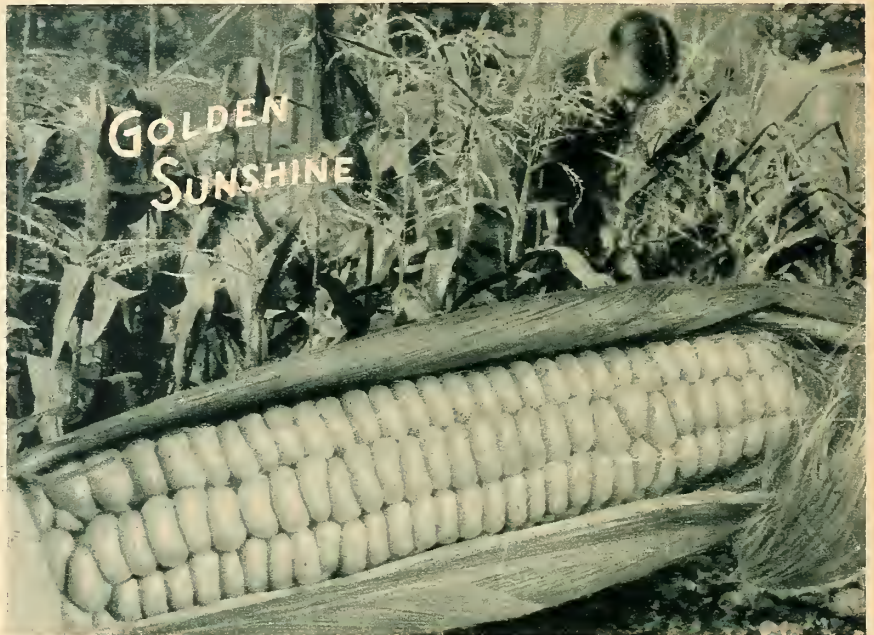 GOLDEN
SUNSHINE